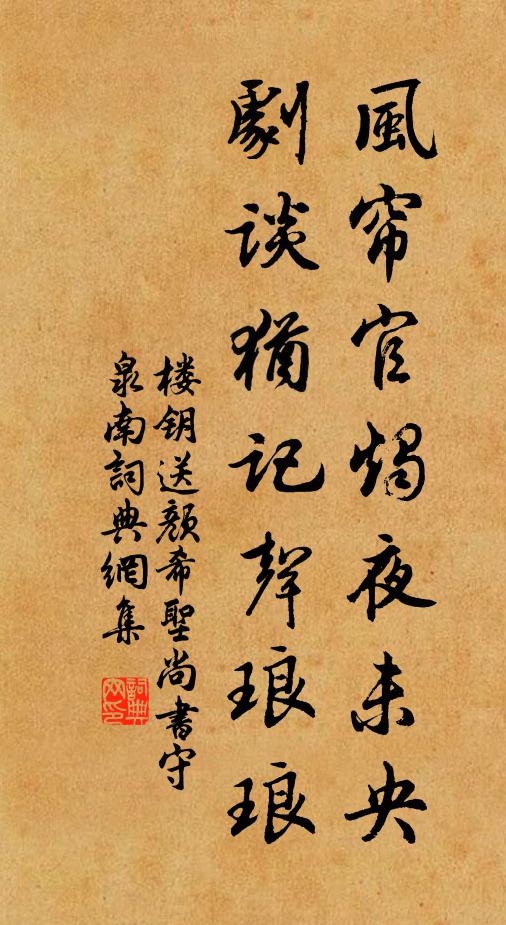 風帘官燭夜未央
劇談猶记聲琅琅
楼钥送颜希聖尚書守
泉南詞典網集
詞典
网印